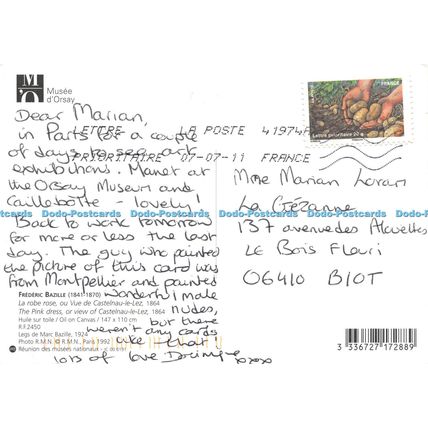 Musée
d'Orsay
FRANCE
Lettre prioritaire 20 g
LETTRE LA POSTE 41974A
PRIORITAIRE 07-07-11 FRANCE
Dear Marian,
in Paris for a couple
of days to see art
exhibitions. Manet at
the Orsay Museum and
Caillebotte - lovely!
Back to work tomorrow
for more or less the last
day. The guy who painted
the picture of this card was
from Montpellier and painted
wonderful male
nudes,
but there
weren't any cards
like that
lots of love
xoxo
Mme Marian
La
137 avenue des Alouettes
Le Bois Fleuri
06410 BIOT
Dodo-Postcards Dodo-Postcards Dodo-Postcards Dodo-Postcards Dodo-Postcards
FRÉDÉRIC BAZILLE (1841-1870)
La robe rose, ou Vue de Castelnau-le-Lez, 1864
The Pink dress, or view of Castelnau-le-Lez, 1864
Huile sur toile / Oil on Canvas / 147 x 110 cm
R.F.2450
Legs de Marc Bazille, 1924
Photo R.M.N. © R.M.N., Paris 1992
Réunion des musées nationaux
3 336727 172889